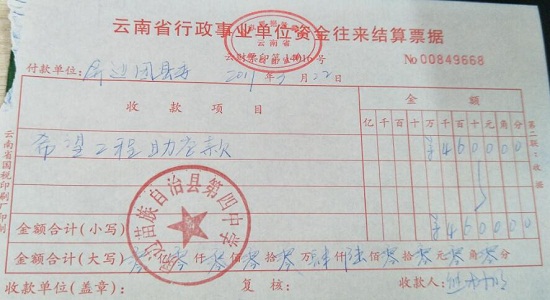 云南省行政事业单位资金往来结算票据
云南省
No 00849668
付款单位: 屏边团县委 2011年3月22日
收款项目 金额
亿千百十万千百十元角分
希望工程助学款 ¥460000
金额合计(小写) ¥460000
金额合计(大写) 零亿零仟零佰零拾零万肆仟陆佰零拾零元零角零分
收款单位(盖章): 复核: 收款人:
苗族自治县第四中学
云南省国税印刷厂印制
第二联: